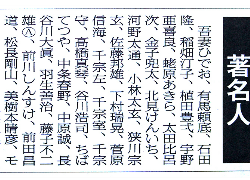 著名人
吾妻ひでお、有馬頼底、石田
隆、稲畑汀子、植田豊弌、宇野
亜喜良、蛯原あきら、太田比呂
次、金子兜太、北見けんいち、
河野太通、小林太玄、狭川宗
玄、佐藤邦雄、下村瑞晃、菅原
信海、千宗左、千宗室、千宗
守、高橋真琴、谷川浩司、ちば
てつや、中条春野、中原誠、長
谷川大眞、羽生善治、藤子不二
雄Ⓐ、前川しんすけ、前田昌
道、松長剛山、美樹本晴彦、モ